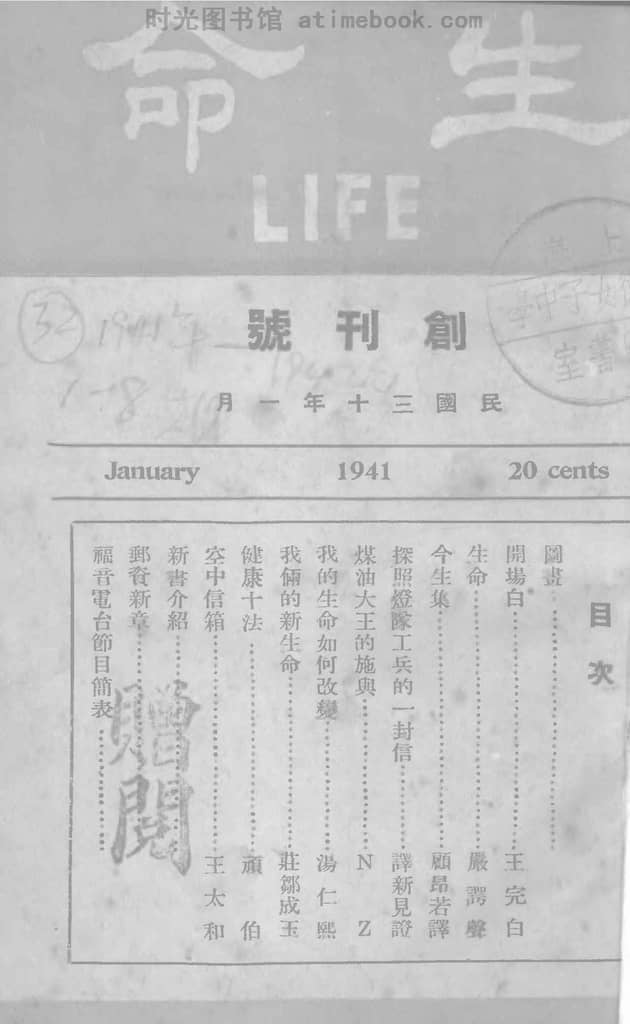 时光图书馆 atimebook.com
生命
LIFE
創刊號
民國三十年一月
32
1941年
January 1941 20 cents
目次
圖畫
開場白 王完白
生命 嚴諤聲
今生集 顧昂若譯
探照燈隊工兵的一封信 譯新見證
煤油大王的施與 N Z
我的生命如何改變 湯仁熙
我倆的新生命 莊鄒成玉
健康十法 頑伯
空中信箱 王太和
新書介紹
郵資新章
福音電台節目簡表
贈閱